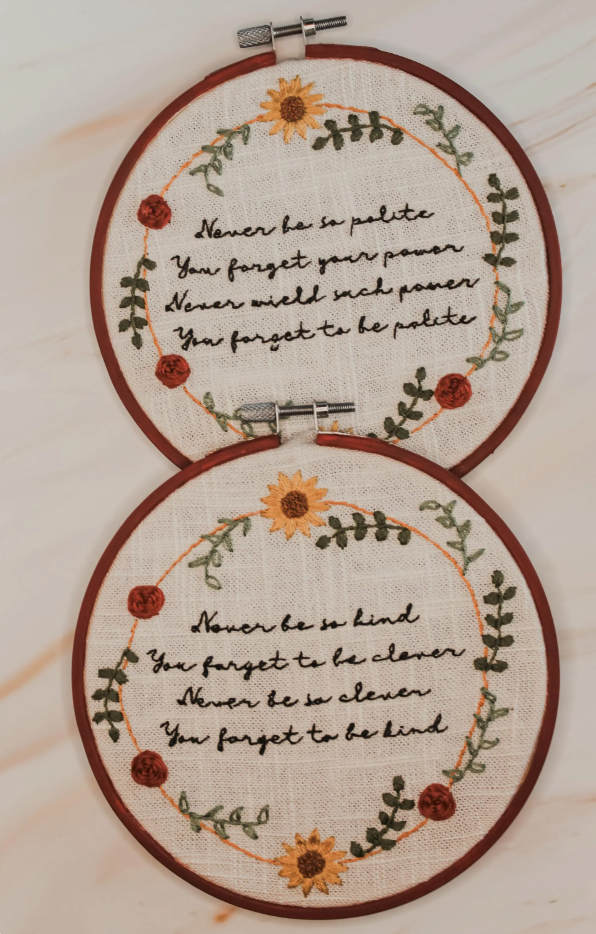 Never be so polite
You forget your power
Never wield such power
You forget to be polite
Never be so kind
You forget to be clever
Never be so clever
You forget to be kind